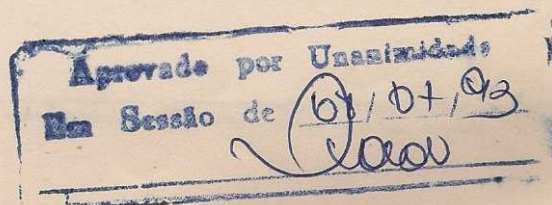 Aprovado por Unanimidade
Em Sessão de / /93